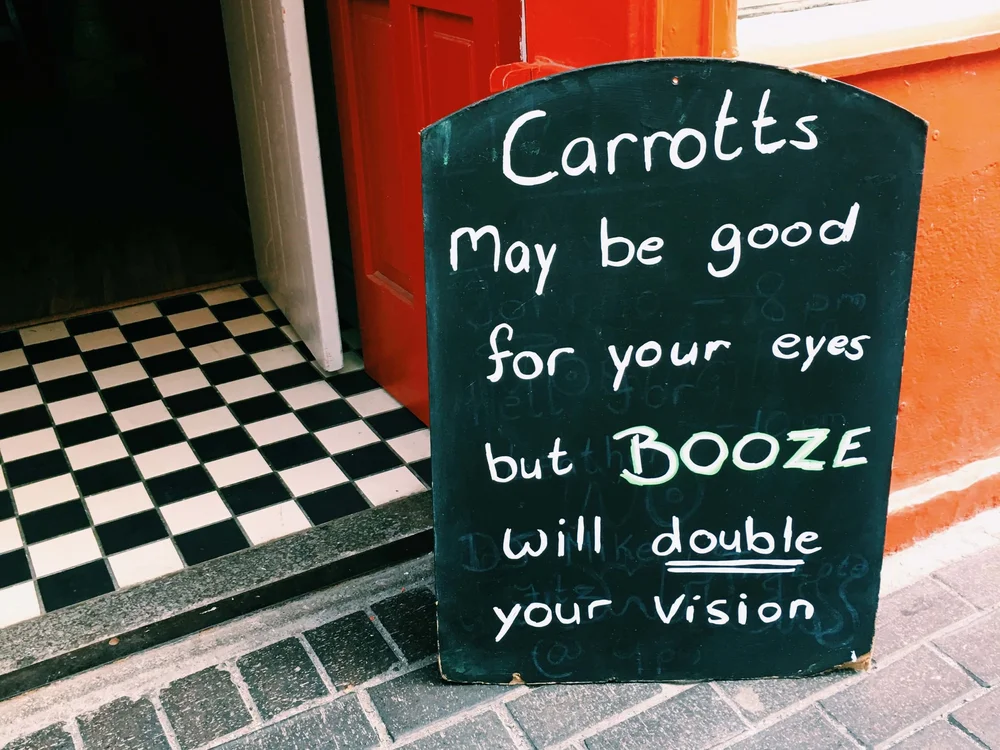 Carrotts
May be good
for your eyes
but BOOZE
will double
your vision